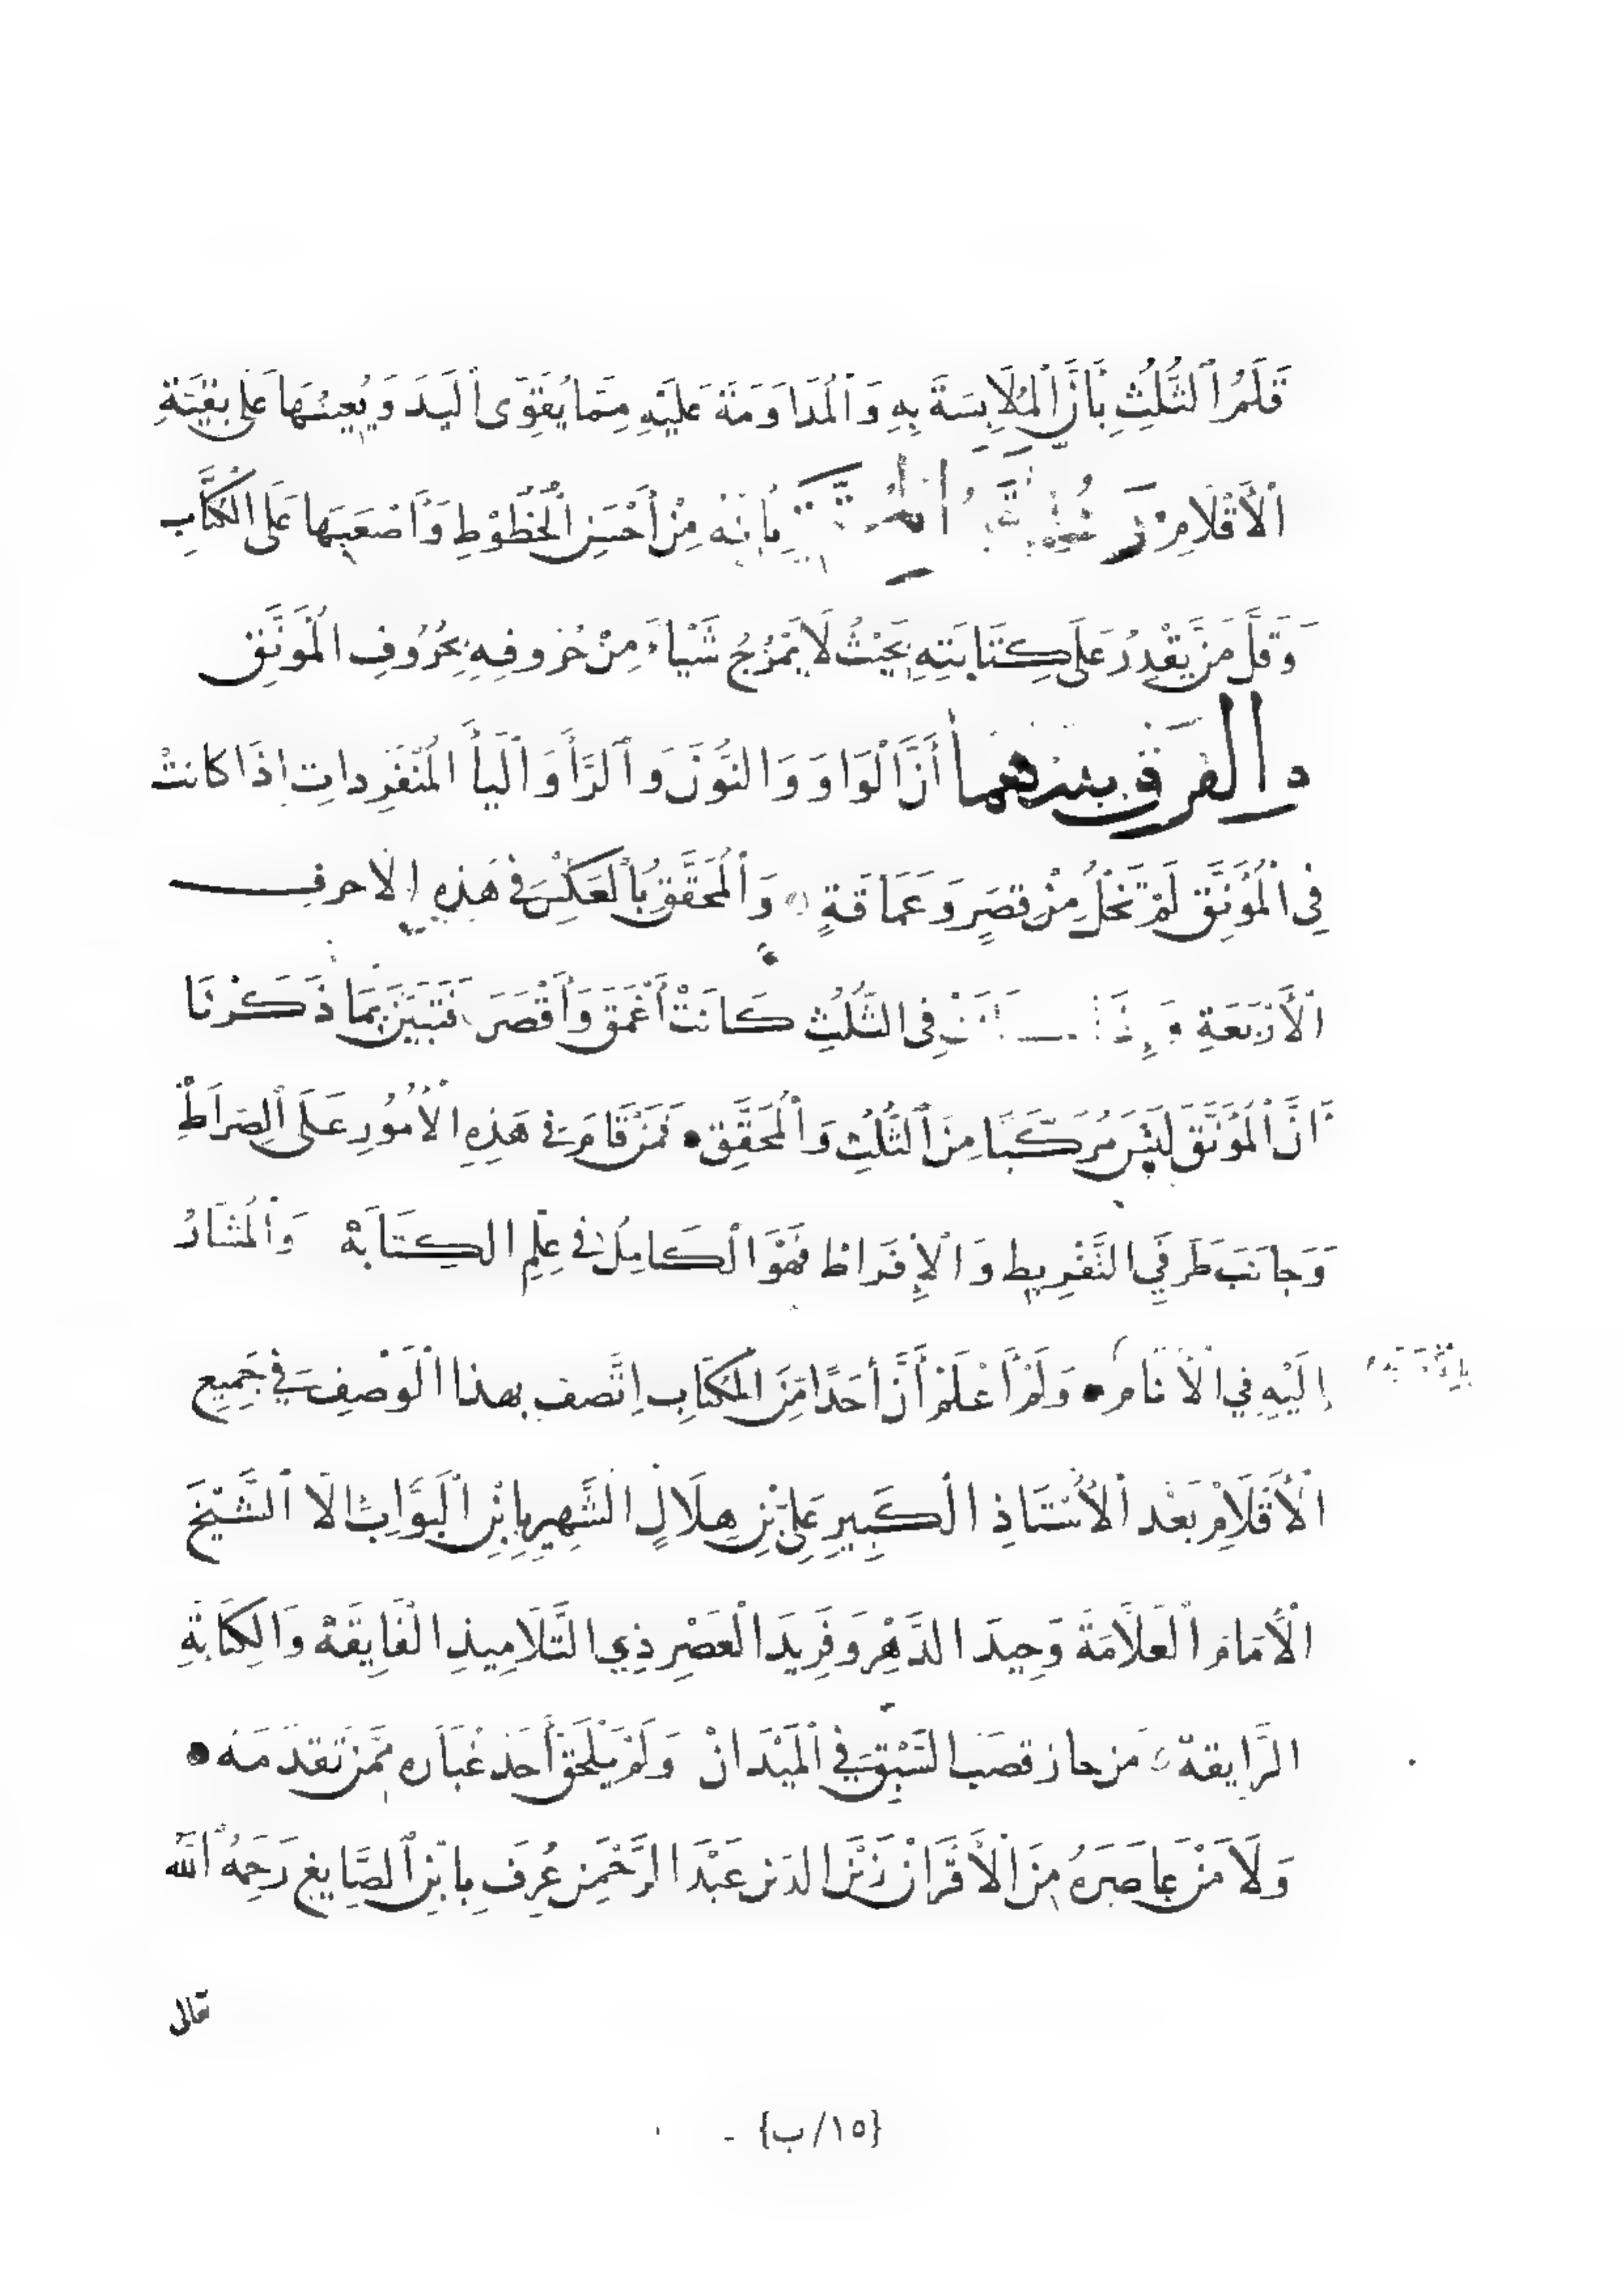 قَلَمُ ٱلثُّلُثِ بِأَنَّ ٱلْمُلَابِسَةَ بِهِ وَٱلْمُدَاوَمَةَ عَلَيْهِ مِمَّا يُقَوِّى ٱلْيَدَ وَيُعِينُهَا عَلَى بَقِيَّةِ
ٱلْأَقْلَامِ بِأَنَّهُ مِنْ أَحْسَنِ ٱلْخُطُوْطِ وَأَصْعَبِهَا عَلَى ٱلْكُتَّابِ
وَقَلَّ مَنْ يَقْدِرُ عَلَى كِتَابَتِهِ بِحَيْثُ لَا يَمْزُجُ شَيْاءً مِنْ حُرُوفِهِ بِحُرُوفِ الْمُوَنَّقِ
والفرق بينهما أَنَّ ٱلْوَاوَ وَالنُّوْنَ وَٱلرَّأَ وَٱلْيأَ الْمُنْفَرِداتِ إِذَا كانتْ
فِى ٱلْمُوَنَّقِ لَمْ تَخْلُ مِنْ قِصَرٍ وَعَمَاقَةٍ وَٱلْمُحَقَّقِ بِٱلْعَكْسِ فِى هَذِهِ الاحرف
ٱلْأَرْبَعَةِ فِى الثُّلُثِ كَانَتْ أَعْمَقَ وَأَقْصَرَ فَتَبَيَّنَ بِمَا ذَكَرْنَا
انَّ ٱلْمُوَنَّقَ لَيْسَ مُرَكَّبًا مِنَ ٱلثُّلُثِ وَٱلْمُحَقَّقِ • فَمَنْ قَامَ فى هَذِهِ الْأُمُوُرِ عَلَى ٱلصِرَاطِ
وَجانَبَ طَرَفَيِ التَّفْرِيطِ وَالْإِفْرَاطْ فَهُوَ الْكَامِلُ فى عِلْمِ الكِتَابَهْ وَالْمُشَارُ
إِلَيْهِ فِي الْأَنَامِ • وَلَمْ أَعْلَمْ أَنَّ أَحَدًا مِّنَ الكُتَّابِ اتَّصف بهذا الْوَصْفِ فِي جَمِيعِ
الْأَقْلَامْ بَعْدَ الْأُسْتَاذِ الْكَبِيرِ عَلِىِّ بْنِ هِلَالٍ الشَّهِيرِ بِابْنِ الْبَوَّابْ الَّا الشَّيْخَ
الْأِمَامَ الْعَلَّامَةَ وَحِيدَ الدَّهْرِ وَفَرِيدَ الْعَصْرِ ذِي التَّلَامِيذِ الْفَايِقَةْ وَالكِتَابَةِ
الرَّايقةْ من حاز قصَبَ السَّبْقِ فِي الْمَيْدَانْ وَلَمْ يَلْحَقْ أَحَدٌ غُبَارَه مِمَّنْ تَقَدَّمَه •
وَلَا مَنْ عَاصَرَهُ مِنَ الْأَقْرَانْ زَيْنَ الدين عَبْدَ الرَّحْمنِ عُرِفَ بِابْنِ الصَّايغِ رَحِمَهُ اللّه
تعالى
{١٥/ب}